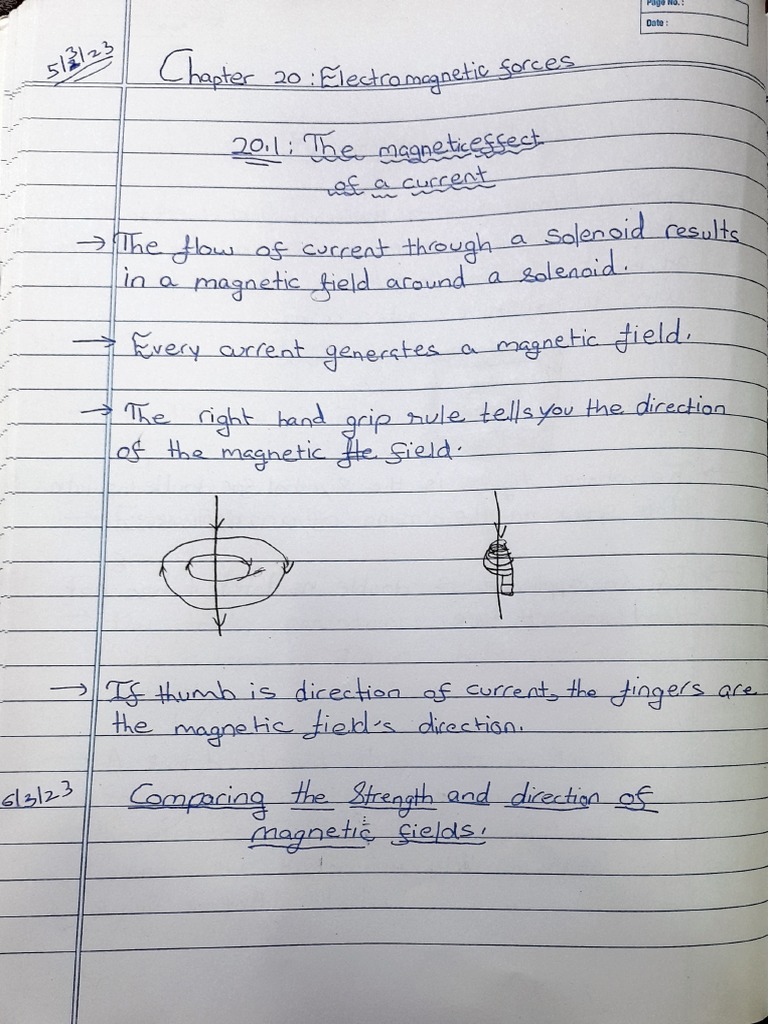 Page No.:
Date:
5/3/23
Chapter 20: Electromagnetic forces
20.1: The magnetic effect
of a current
→ The flow of current through a solenoid results
in a magnetic field around a solenoid.
→ Every current generates a magnetic field.
→ The right hand grip rule tells you the direction
of the magnetic field.
→ If thumb is direction of current, the fingers are
the magnetic field's direction.
6/3/23
Comparing the Strength and direction of
magnetic fields.